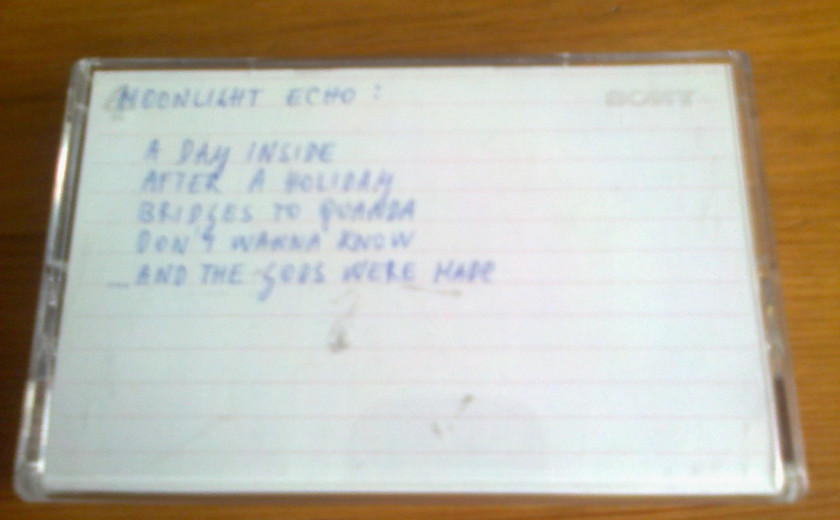 MOONLIGHT ECHO :
SONY
A DAY INSIDE
AFTER A HOLIDAY
BRIDGES TO QUANDA
DON'T WANNA KNOW
_AND THE GODS WERE MADE